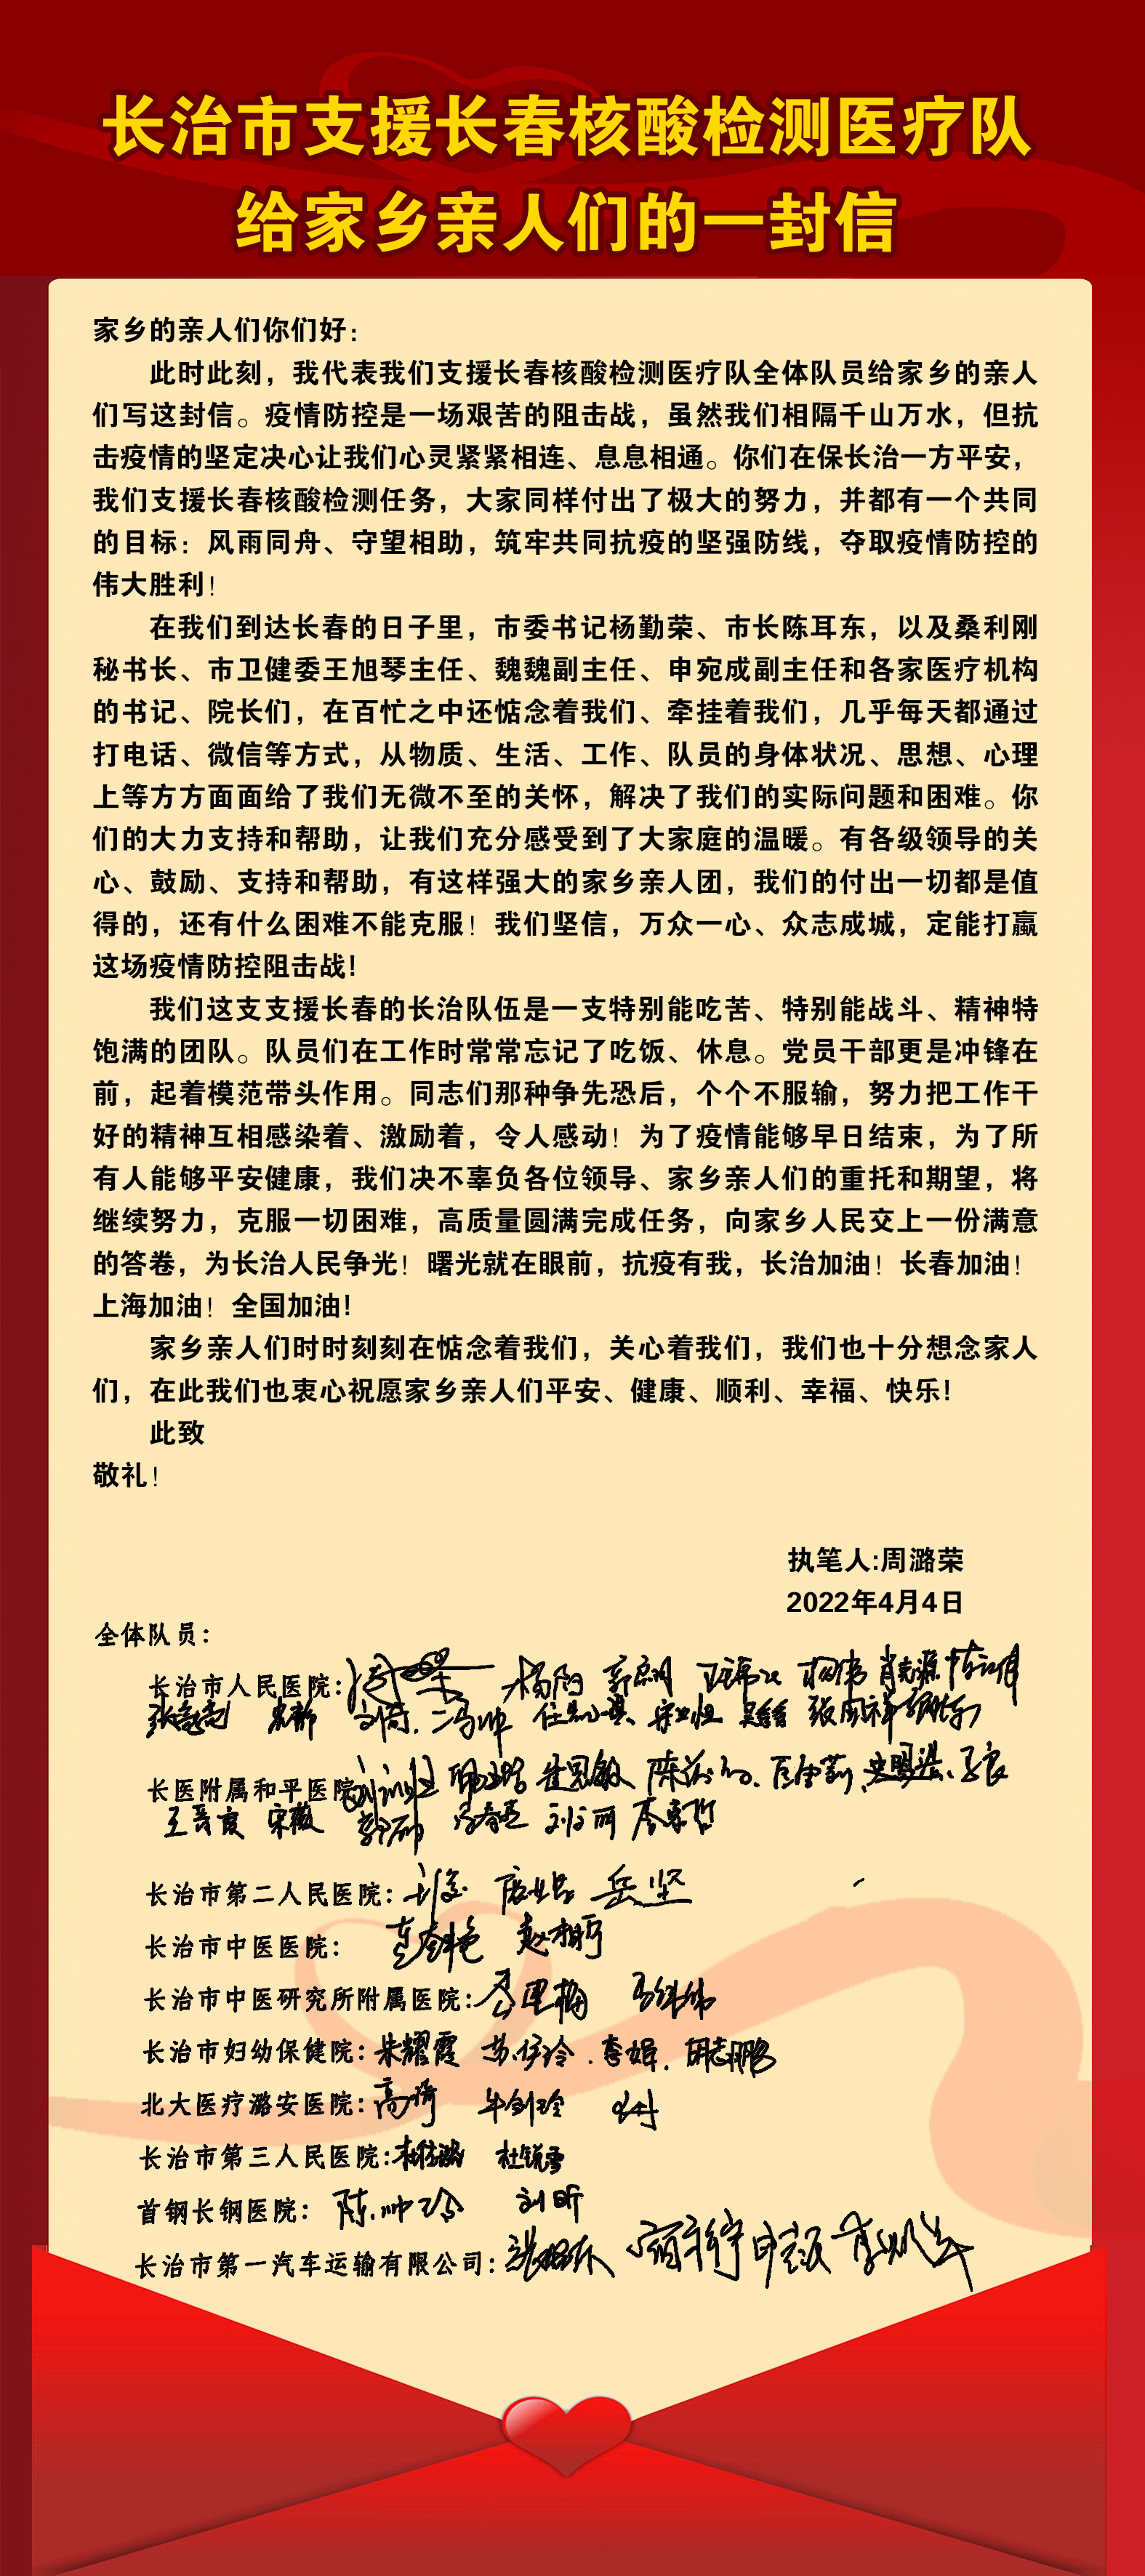 长治市支援长春核酸检测医疗队
给家乡亲人们的一封信
家乡的亲人们你们好：
此时此刻，我代表我们支援长春核酸检测医疗队全体队员给家乡的亲人
们写这封信。疫情防控是一场艰苦的阻击战，虽然我们相隔千山万水，但抗
击疫情的坚定决心让我们心灵紧紧相连、息息相通。你们在保长治一方平安，
我们支援长春核酸检测任务，大家同样付出了极大的努力，并都有一个共同
的目标：风雨同舟、守望相助，筑牢共同抗疫的坚强防线，夺取疫情防控的
伟大胜利！
在我们到达长春的日子里，市委书记杨勤荣、市长陈耳东，以及桑利刚
秘书长、市卫健委王旭琴主任、魏魏副主任、申宛成副主任和各家医疗机构
的书记、院长们，在百忙之中还惦念着我们、牵挂着我们，几乎每天都通过
打电话、微信等方式，从物质、生活、工作、队员的身体状况、思想、心理
上等方方面面给了我们无微不至的关怀，解决了我们的实际问题和困难。你
们的大力支持和帮助，让我们充分感受到了大家庭的温暖。有各级领导的关
心、鼓励、支持和帮助，有这样强大的家乡亲人团，我们的付出一切都是值
得的，还有什么困难不能克服！我们坚信，万众一心、众志成城，定能打赢
这场疫情防控阻击战！
我们这支支援长春的长治队伍是一支特别能吃苦、特别能战斗、精神特
饱满的团队。队员们在工作时常常忘记了吃饭、休息。党员干部更是冲锋在
前，起着模范带头作用。同志们那种争先恐后，个个不服输，努力把工作干
好的精神互相感染着、激励着，令人感动！为了疫情能够早日结束，为了所
有人能够平安健康，我们决不辜负各位领导、家乡亲人们的重托和期望，将
继续努力，克服一切困难，高质量圆满完成任务，向家乡人民交上一份满意
的答卷，为长治人民争光！曙光就在眼前，抗疫有我，长治加油！长春加油！
上海加油！全国加油！
家乡亲人们时时刻刻在惦念着我们，关心着我们，我们也十分想念家人
们，在此我们也衷心祝愿家乡亲人们平安、健康、顺利、幸福、快乐！
此致
敬礼！
执笔人:周潞荣
2022年4月4日
全体队员：
长治市人民医院： 杨阳
长医附属和平医院 崔思敏
王晋良 宋薇 刘文丽
长治市第二人民医院： 岳坚
长治市中医医院：
长治市中医研究所附属医院：
长治市妇幼保健院：朱耀霞 李娟 胡志鹏
北大医疗潞安医院：高琦 牛剑玲
长治市第三人民医院： 杜锐雪
首钢长钢医院： 陈帅玲 刘昕
长治市第一汽车运输有限公司：